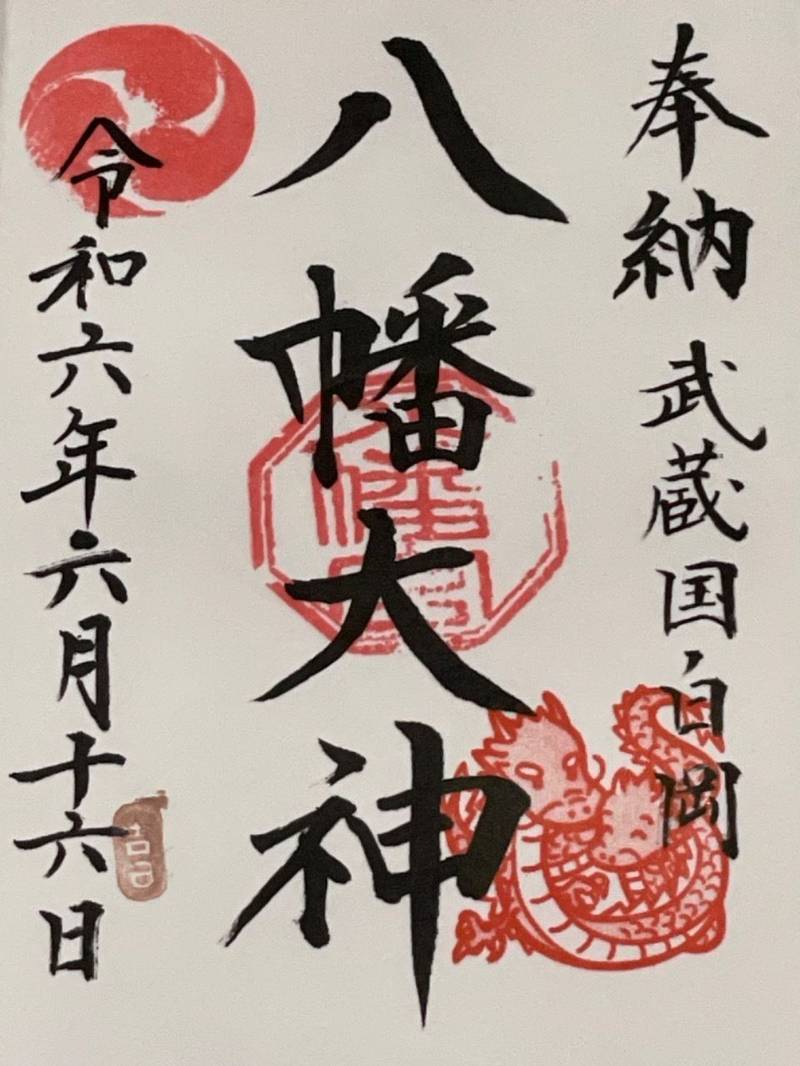 奉納 武蔵国白岡
八幡大神
令和六年六月十六日